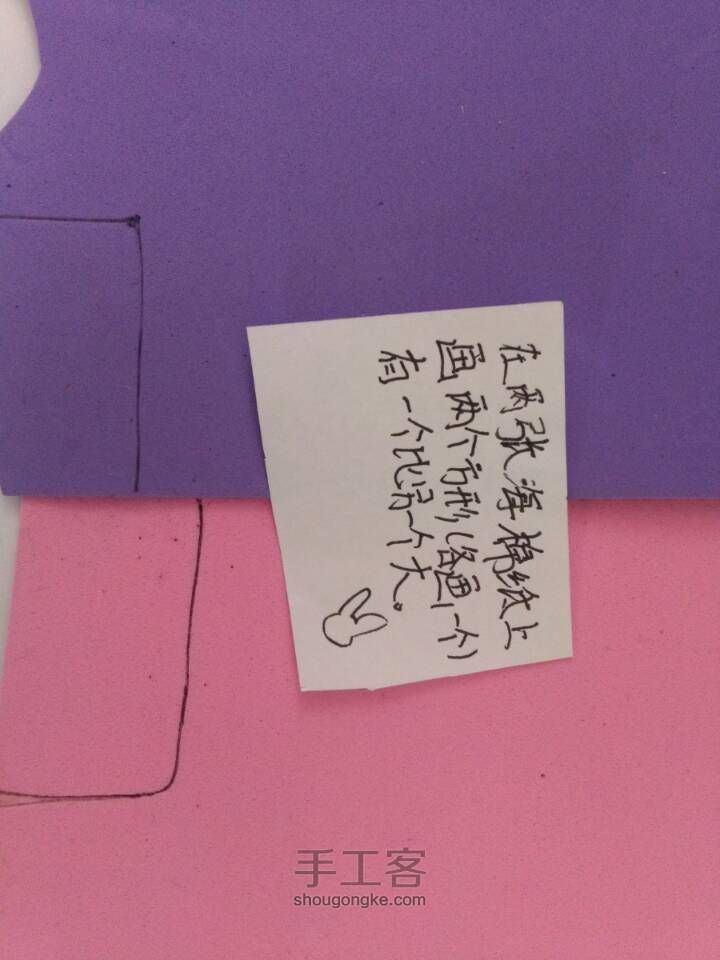 在两张海棉纸上
画两个方形(各画一个)
有一个比另一个大。
手工客
shougongke.com